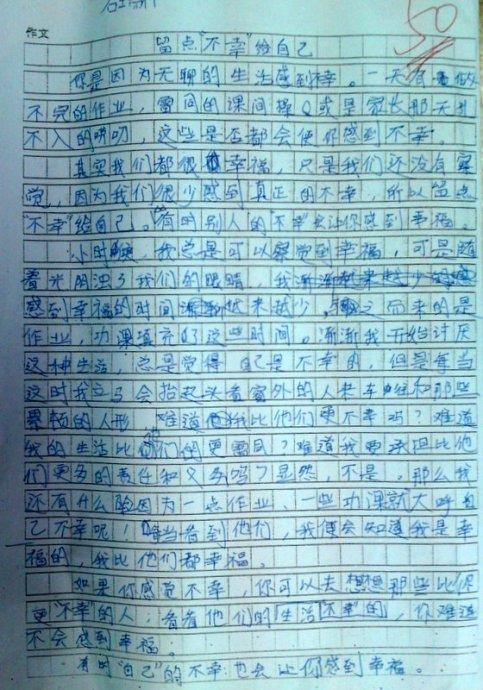 作文
50
留点"不幸"给自己
你是因为无聊的生活感到不幸。一天有做
不完的作业,雷同的课间操或是家长那无孔
不入的唠叨,这些是否都会使你感到不幸。
其实我们都很幸福,只是我们还没有察
觉,因为我们很少感到真正的不幸,所以留点
"不幸"给自己。有时别人的"不幸"会让你感到幸福。
小时候,我总是可以察觉到幸福,可是随
着光阴浊了我们的眼睛,我
感到幸福的时间越来越少,之而来的是
作业,功课填充了这些时间。渐渐我开始讨厌
这种生活,总是觉得自己是不幸的,但是每当
这时我立马会抬起头看窗外的人来车往和那些
累顿的人形,难道我比他们更不幸吗?难道
我的生活比他们的更雷同?难道我要承担比他
们更多的责任和义务吗?显然,不是。那么我
还有什么脸因为一点作业、一些功课就大呼自
己不幸呢,每当看到他们,我便会知道我是幸
福的,我比他们都幸福。
如果你感觉不幸,你可以去想想那些比你
更"不幸"的人,看看他们的"生活""不幸"的,你难道
不会感到幸福。
有时"自己"的不幸也会让你感到幸福。